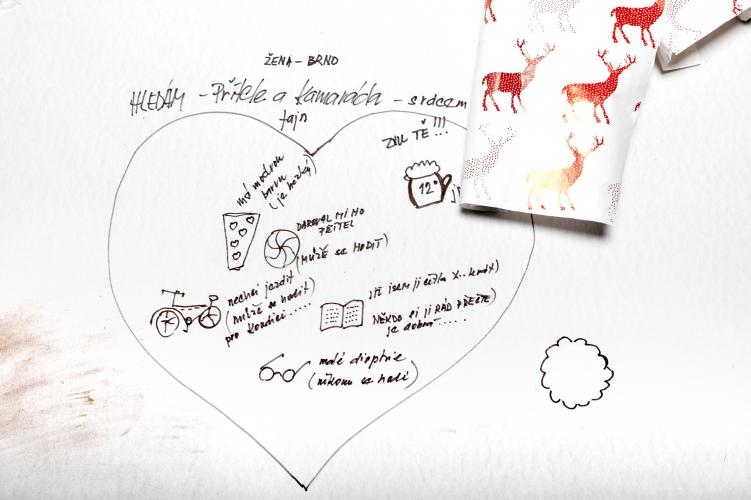 ŽENA - BRNO
HLEDÁM - Přítele a kamaráda - srdcem
fajn
ZVU TĚ !!!
...
12°
má modrou
barvu
(je hezká)
DAROVAL MI HO
PŘÍTEL
(MŮŽE SE HODIT)
nechci jezdit
(může se hodit)
pro kondici.....
již jsem ji četla x.. krát
NĚKDO SI JI RÁD PŘEČTE)
je dobrá.....
malé dioptrie
(někomu se hodí)